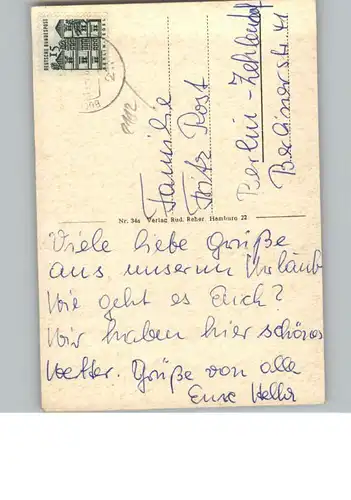 15
DEUTSCHE BUNDESPOST
Familie
Fritz Post
Berlin-Zehlendorf
Berliner str. 41
Nr. 34s Verlag Rud. Reher, Hamburg 22
Viele liebe Grüße
aus unserem Urlaub
Wie geht es Euch?
Wir haben hier schönes
Wetter. Grüße von alle
Eure